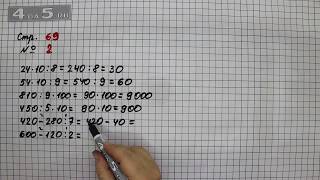 4 GDZ 5.RU
Стр. 69
№ 2
24·10:8=240:8=30
54·10:9=540:9=60
810:9·100=90·100=9000
450:5·10=90·10=900
420-280:7=420-40=
600-120:2=